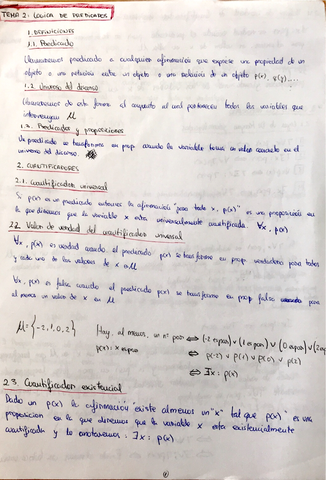 TEMA 2: LOGICA DE PREDICADOS
1. DEFINICIONES
1.1. Predicado
Llamaremos predicado a cualquier afirmación que exprese una propiedad de un
objeto o una relación entre un objeto o una relación de un objeto p(x), q(y)....
1.2 Universo del discurso
Llamaremos de esta forma al conjunto al cual pertenecen todas las variables que
intervengan μ
1.3. Predicados y proposiciones
Un predicado se transforma en prop. cuando la variable toma un valor concreto en el
universo del discurso.
2. CUANTIFICADORES
2.1. Cuantificador universal
Si p(x) es un predicado entonces la afirmación "para todo x, p(x)" es una proposición en
la que diremos que la variable x esta universalmente cuantificada. ∀x, p(x)
2.2. Valor de verdad del cuantificador universal
∀x, p(x) es verdad cuando el predicado p(x) se transforma en prop verdadera para todos
y cada uno de los valores de x en μ
∀x, p(x) es falsa cuando el predicado p(x) se transforma en prop falsa para
al menos un valor de x en μ
μ={-2,1,0,2} Hay, al menos, un nº par ⇔ (-2 es par) ∨ (1 es par) ∨ (0 es par) ∨ (2 es par)
p(x): x es par ⇔ p(-2) ∨ p(1) ∨ p(0) ∨ p(2)
⇔ ∃x: p(x)
2.3 Cuantificador existencial
Dado un p(x) la afirmación "existe al menos un "x" tal que p(x)" es una
proposicion en la que diremos que la variable x esta existencialmente
cuantificada y lo anotaremos: ∃x: p(x)